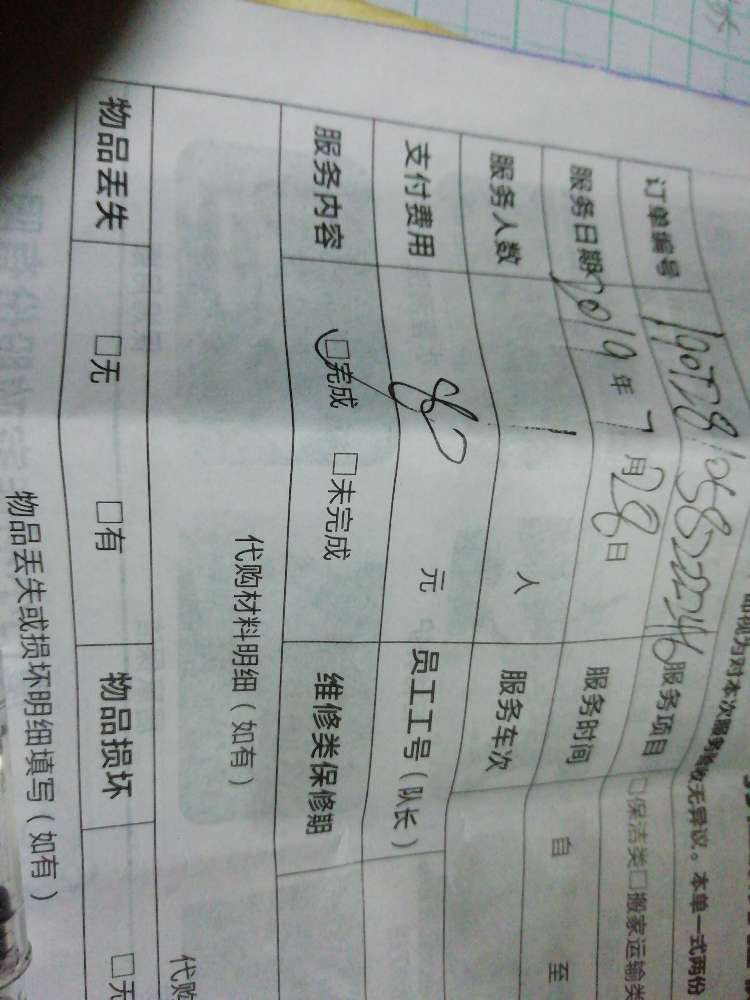 为对本次服务验收无异议。本单一式两份
订单编号 服务项目 □保洁类□搬家运输类
服务日期 2019年7月28日 服务时间 自 至
服务人数 1 人 服务车次
支付费用 80 元 员工工号（队长）
服务内容 □完成 □未完成 维修类保修期
代购材料明细（如有） 代购
物品丢失 □无 □有 物品损坏 □无
物品丢失或损坏明细填写（如有）